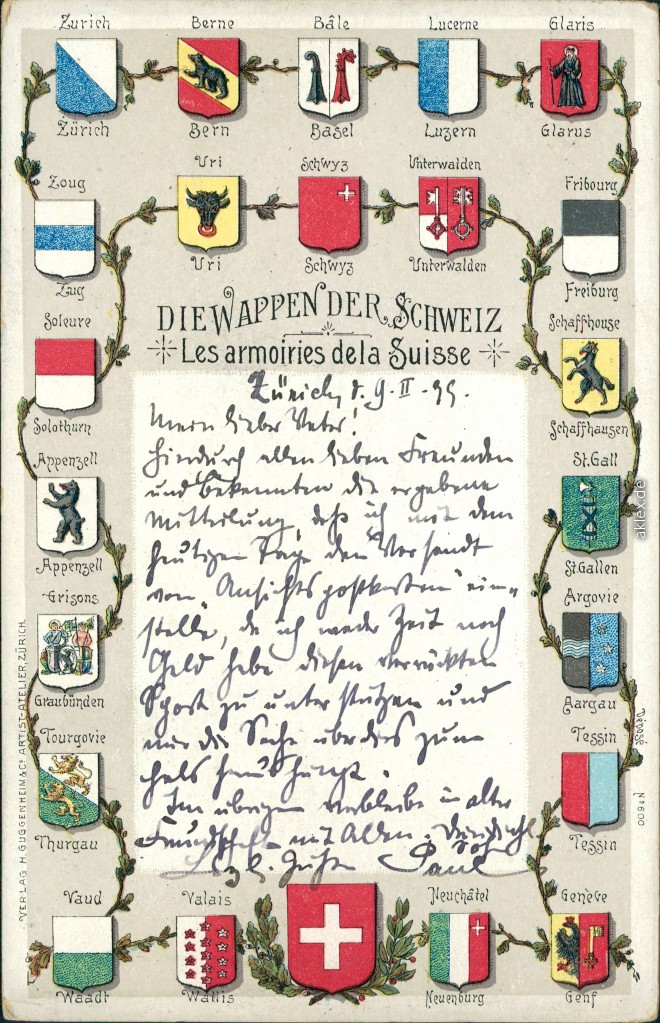 Zürich Berne Bâle Lucerne Glaris
Zürich Bern Basel Luzern Glarus
Zoug Uri Schwyz Unterwalden Fribourg
Zug Uri Schwyz Unterwalden Freiburg
DIE WAPPEN DER SCHWEIZ
Les armoiries de la Suisse
Soleure Schaffhouse
Solothurn Schaffhausen
Appenzell St.Gall
Appenzell St.Gallen
Grisons Argovie
Graubünden Aargau
Tourgovie Tessin
Thurgau Tessin
Zürich, d. 9. II. 99.
Mein lieber Vater!
Hiedurch allen lieben Freunden
und Bekannten die ergebene
Mitteilung, daß ich mit dem
heutigen Tage den Versandt
von "Ansichtspostkarten" ein=
stelle, da ich weder Zeit noch
Geld habe diesen verrückten
Sport zu unterstützen und
mir die Sache überdies zum
Hals heraushängt.
Im übrigen verbleibe in alter
Freundschaft mit Allen, Dein
Sohn
Paul
Vaud Valais Neuchâtel Genève
Waadt Wallis Neuenburg Genf
VERLAG H. GUGGENHEIM & Co. ARTIST-ATELIER, ZÜRICH.
Déposé
No 9400
aklex.de